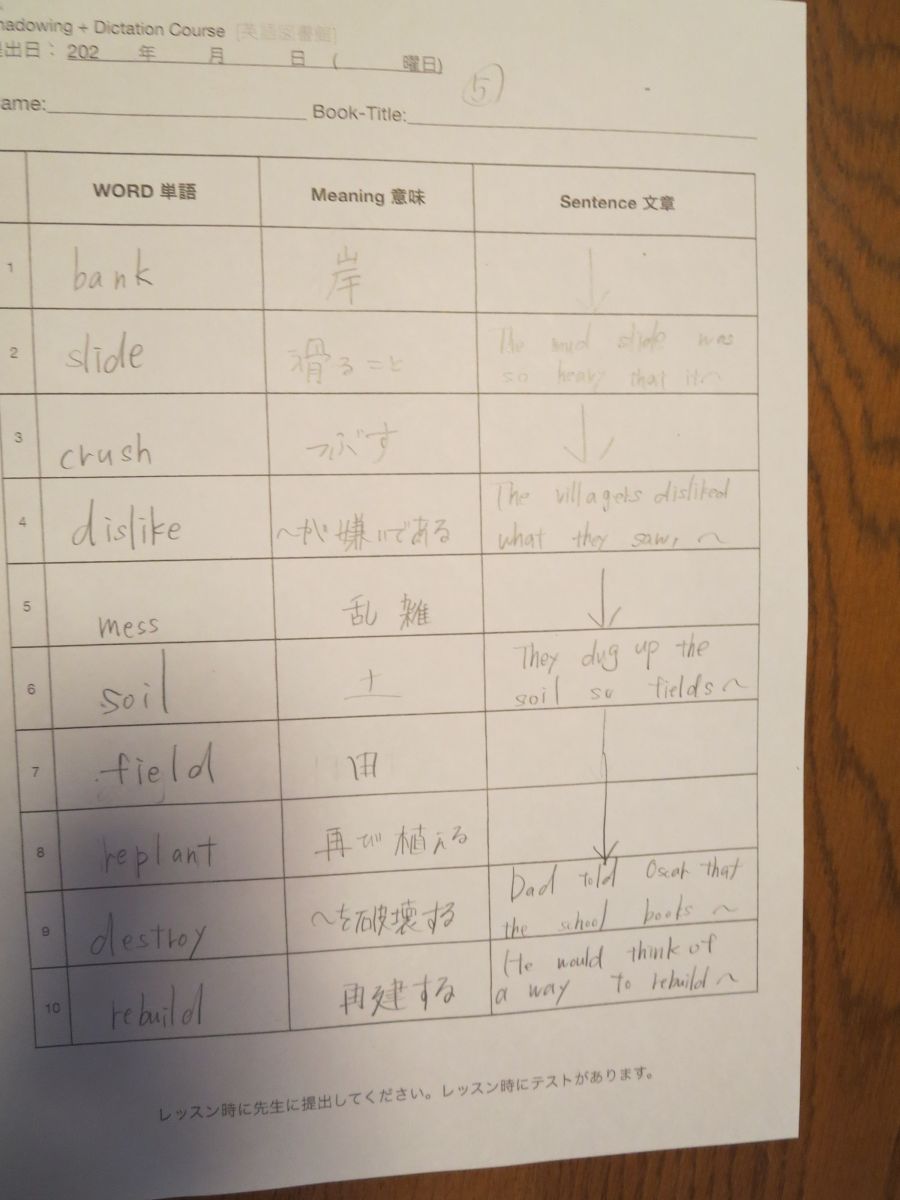 hadowing + Dictation Course [英語図書館]
出日： 202 年 月 日 ( 曜日)
5
ame: Book-Title:
WORD 単語 Meaning 意味 Sentence 文章
1 bank 岸 ↓
2 slide 滑ること The mud slide was
so heavy that it〜
3 crush つぶす ↓
4 dislike 〜が嫌いである The villagers disliked
what they saw, 〜
5 mess 乱雑 ↓
6 soil 土 They dug up the
soil so fields〜
7 field 田
8 replant 再び植える ↓
9 destroy 〜を破壊する Dad told Oscar that
the school books 〜
10 rebuild 再建する He would think of
a way to rebuild〜
レッスン時に先生に提出してください。レッスン時にテストがあります。